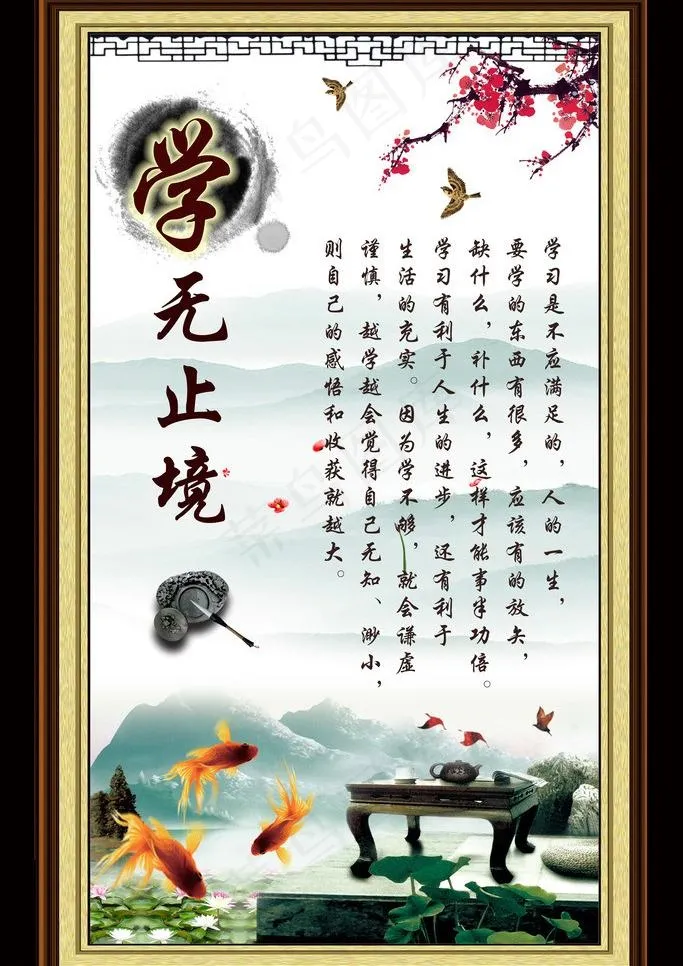 学无止境
学习是不应满足的，人的一生，
要学的东西有很多，应该有的放矢，
缺什么，补什么，这样才能事半功倍。
学习有利于人生的进步，还有利于
生活的充实。因为学不够，就会谦虚
谨慎，越学越会觉得自己无知、渺小，
则自己的感悟和收获就越大。
菜鸟图库